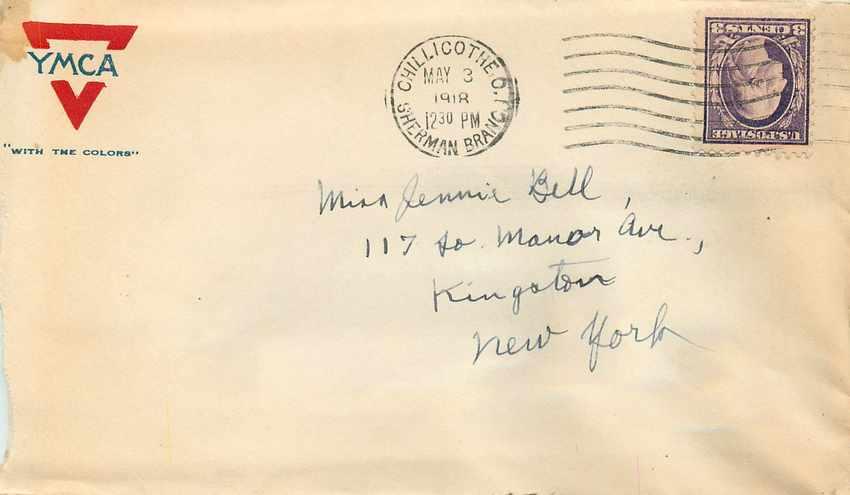 YMCA
"WITH THE COLORS"
CHILLICOTHE, O.
MAY 3
1918
12 30 PM
SHERMAN BRANCH
3 CENTS 3
U.S. POSTAGE
Miss Jennie Bell,
117 So. Manor Ave.,
Kingston
New York